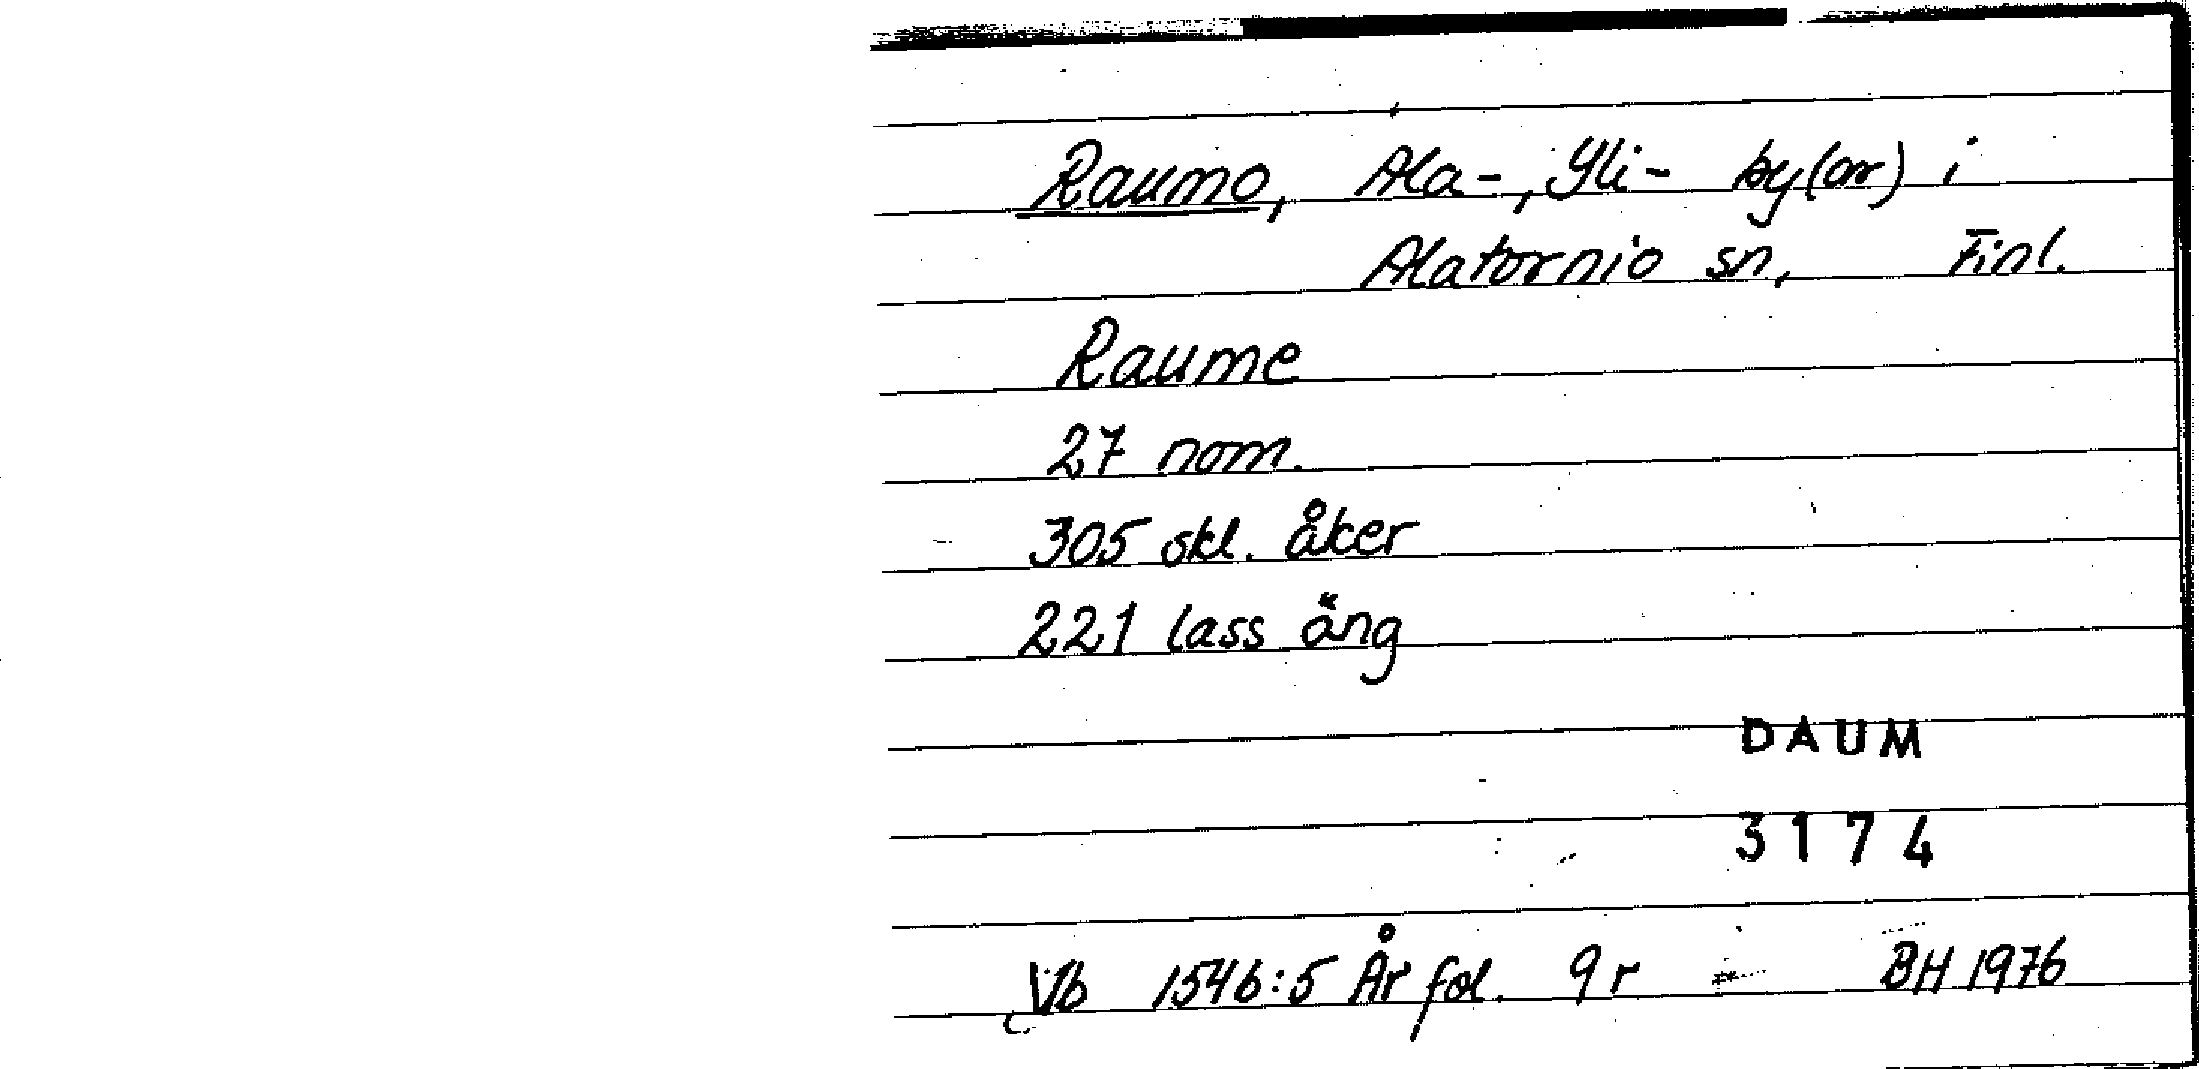 Raumo, Ala-, Yli- by(ar) i
Alatornio sn, Finl.
Raume
27 nom.
305 skl. åker
221 lass äng
DAUM
3174
Vb 1546:5 År fol. 9 r BH 1976